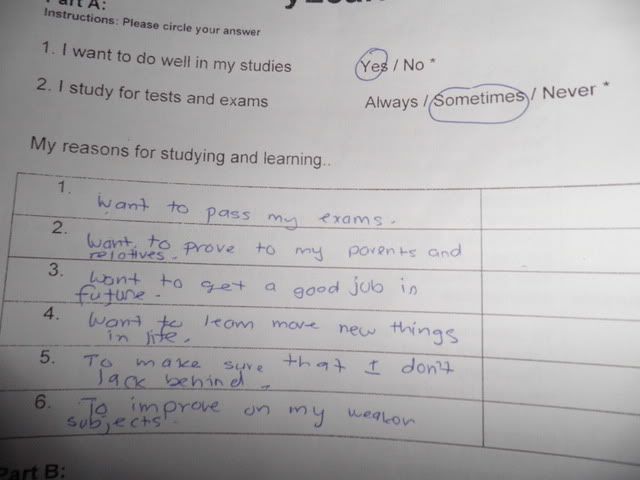 Part A:
Instructions: Please circle your answer
1. I want to do well in my studies Yes / No *
2. I study for tests and exams Always / Sometimes / Never *
My reasons for studying and learning..
1. Want to pass my exams.
2. Want to prove to my parents and
relatives.
3. Want to get a good job in
future.
4. Want to learn more new things
in life.
5. To make sure that I don't
lack behind.
6. To improve on my weaker
subjects.
Part B: